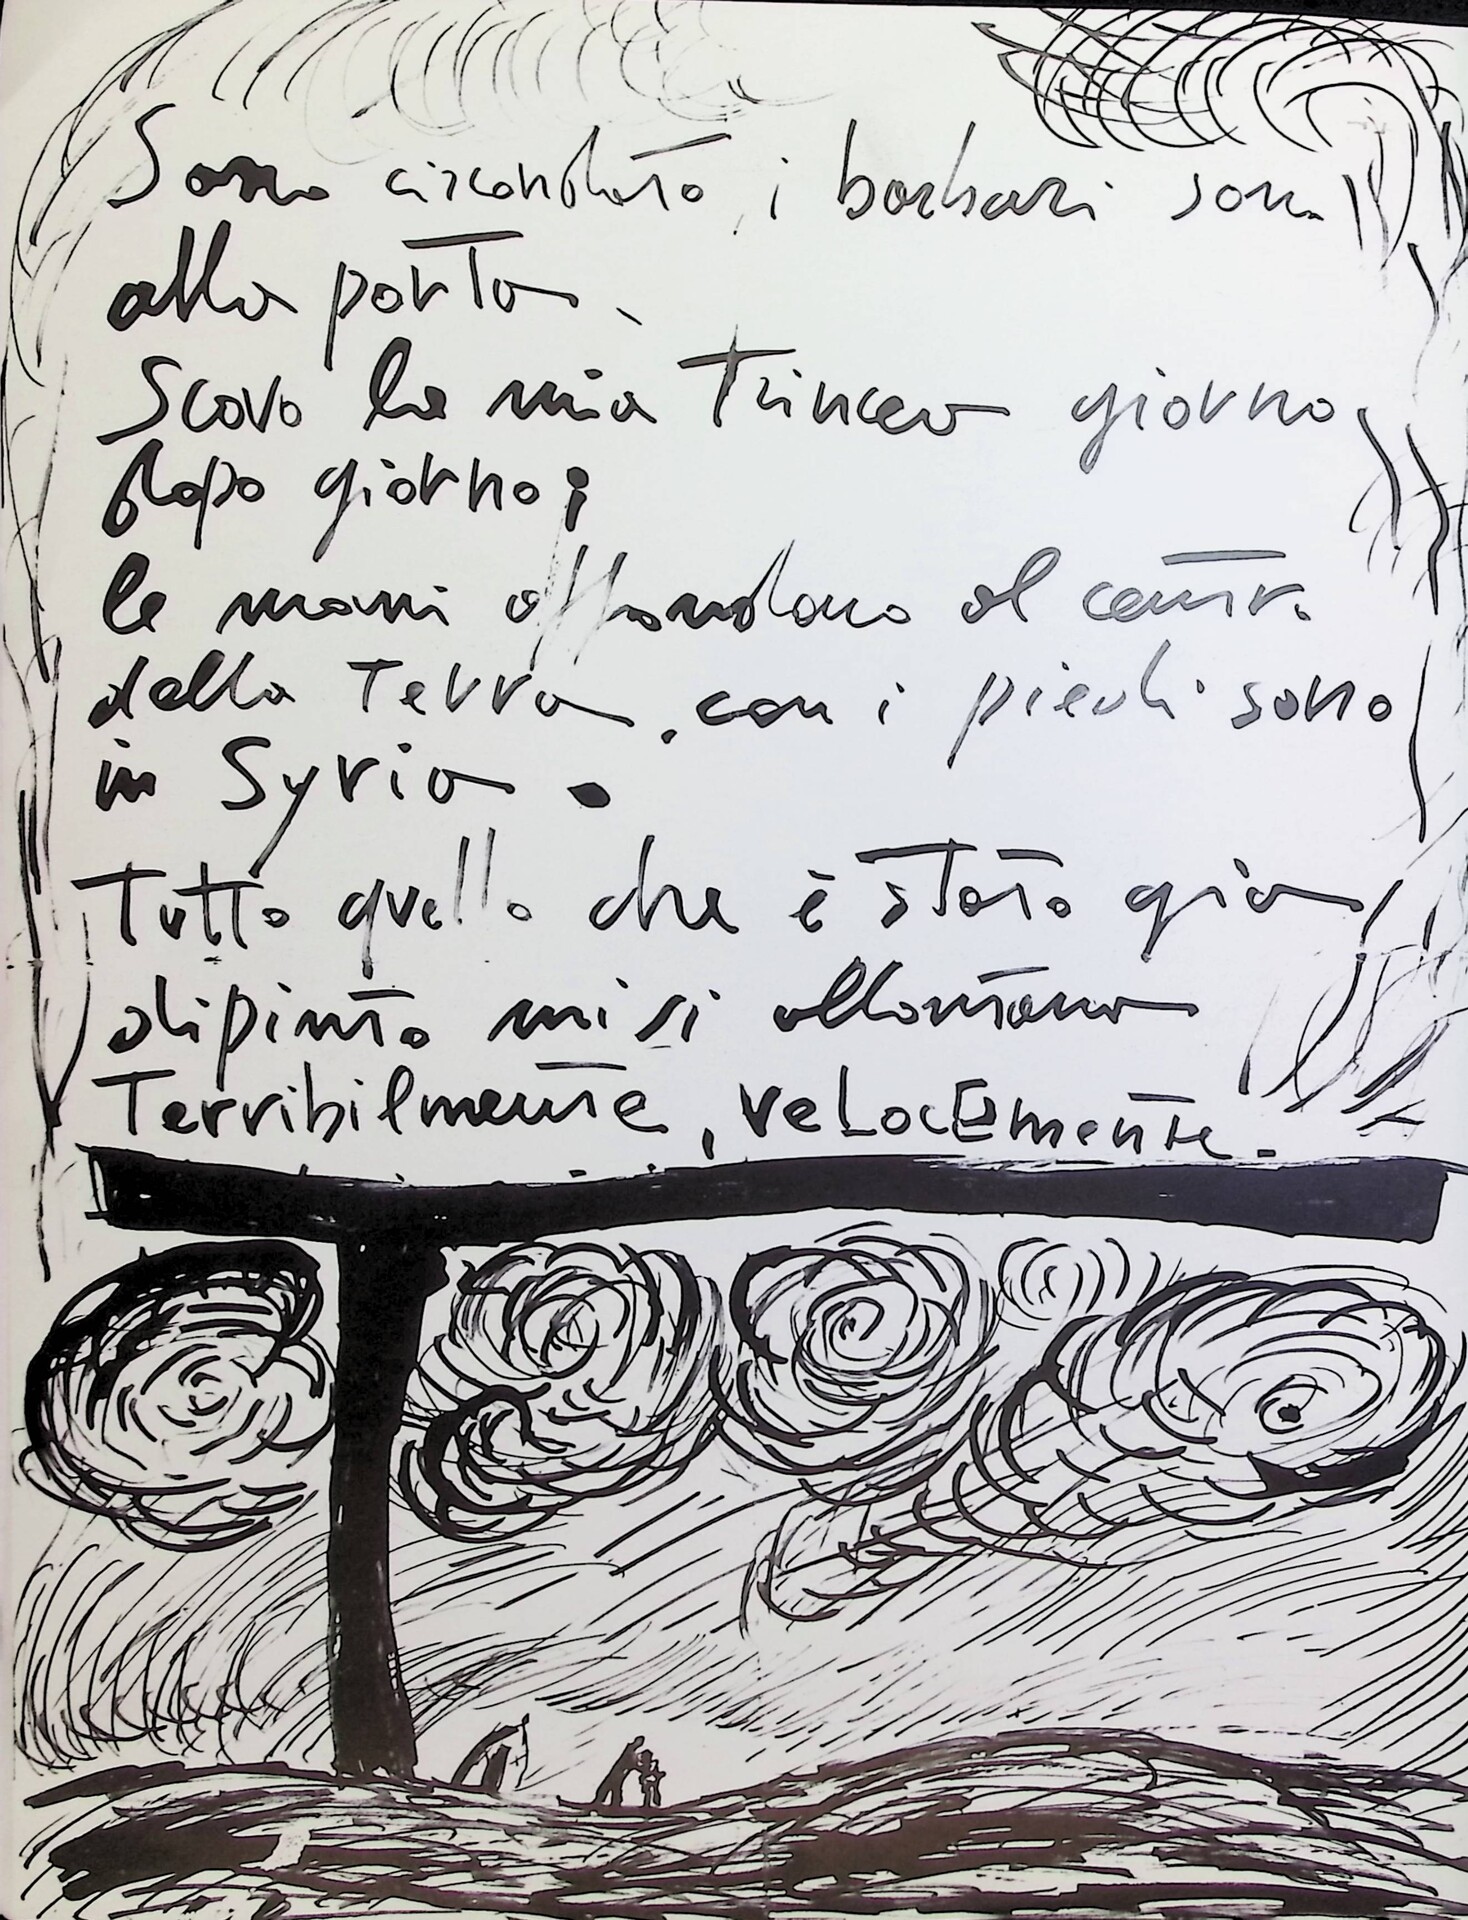 Sono circondato, i barbari sono
alla porta.
Scavo la mia Trincea giorno
dopo giorno;
le mani affondano al centro
della Terra, con i piedi sono
in Syria.
Tutto quello che è stato già
dipinto mi si allontana
Terribilmente, velocemente.